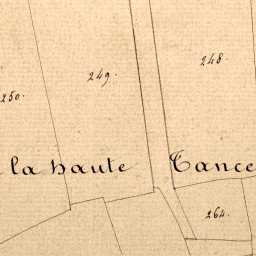 248.
249.
250.
la haute Tance
264.